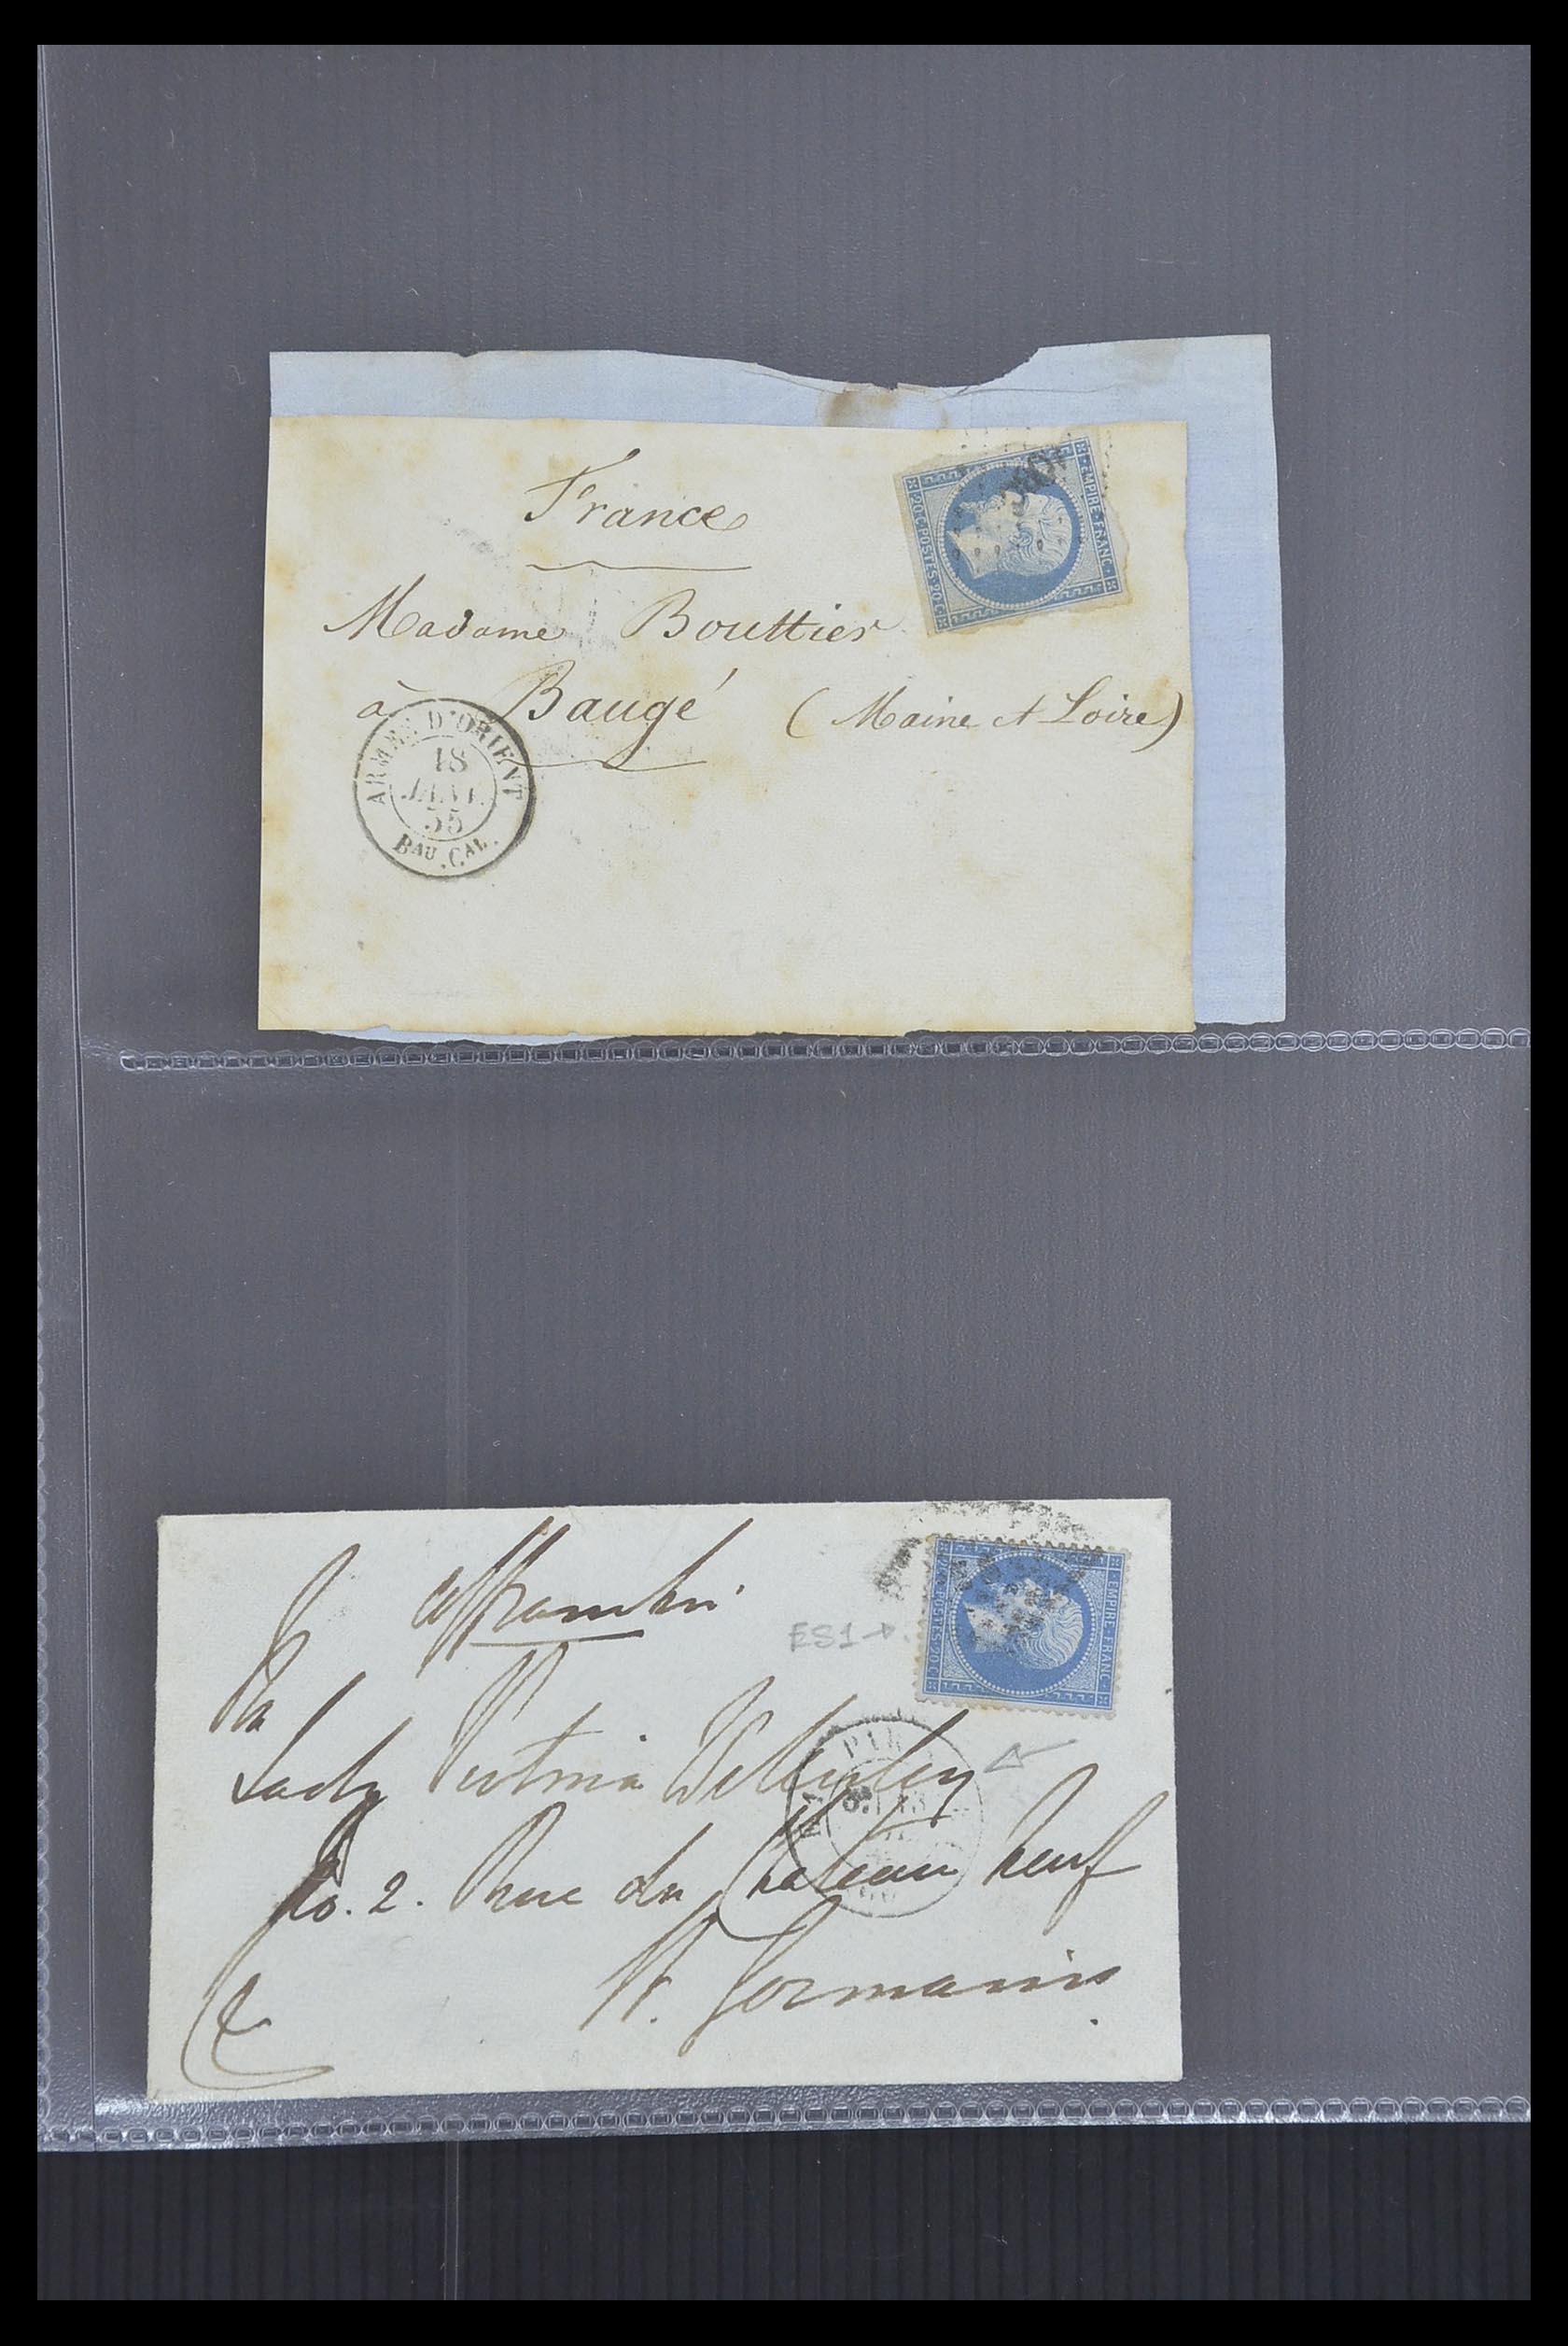 France
EMPIRE·FRANC·
20·C·POSTES·20·C
Madame Bouttier
à Baugé (Maine et Loire)
ARMÉE D'ORIENT
18
JANV.
55
BAU.CAL.
affranchi
EMPIRE·FRANC·
20·C·POSTES·20·C
ES1→
Lady
PARIS
No. 2. Rue du Chateau neuf
St. Germains